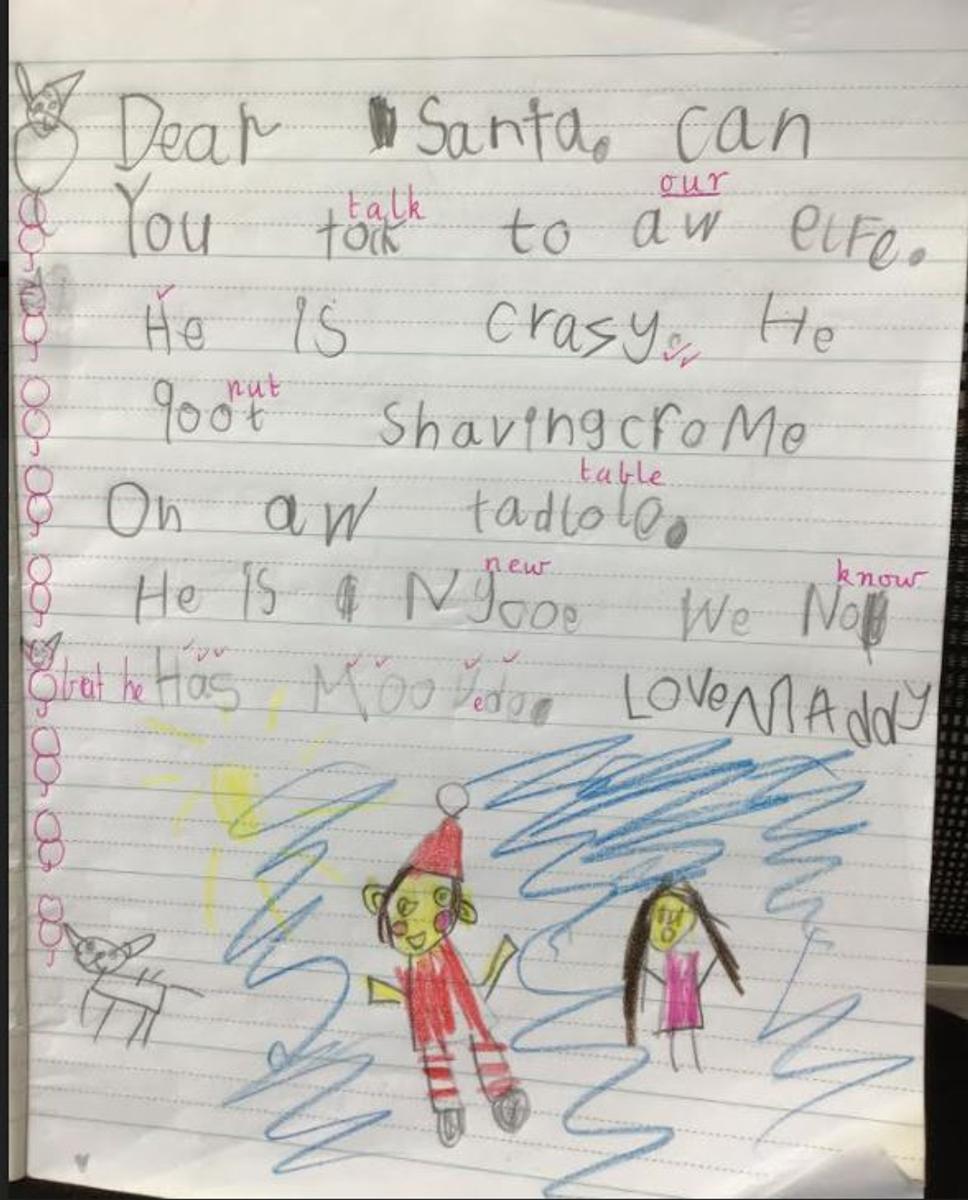 Dear Santa. can
our
talk
You tock to aw elfe.
He is crasy. He
nut
goot shavingcroMe
table
On aw tadlole.
new know
He is Nyooe We No
but he Has Moovedo. LoveMAddy